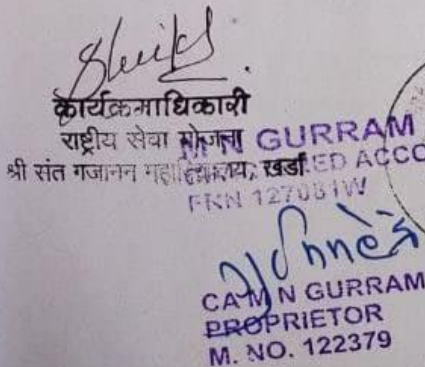 कार्यक्रमाधिकारी
राष्ट्रीय सेवा योजना
श्री संत गजानन महाविद्यालय, खर्डा.
M N GURRAM
ED ACCO
FRN 127081W
CA M N GURRAM
PROPRIETOR
M. NO. 122379